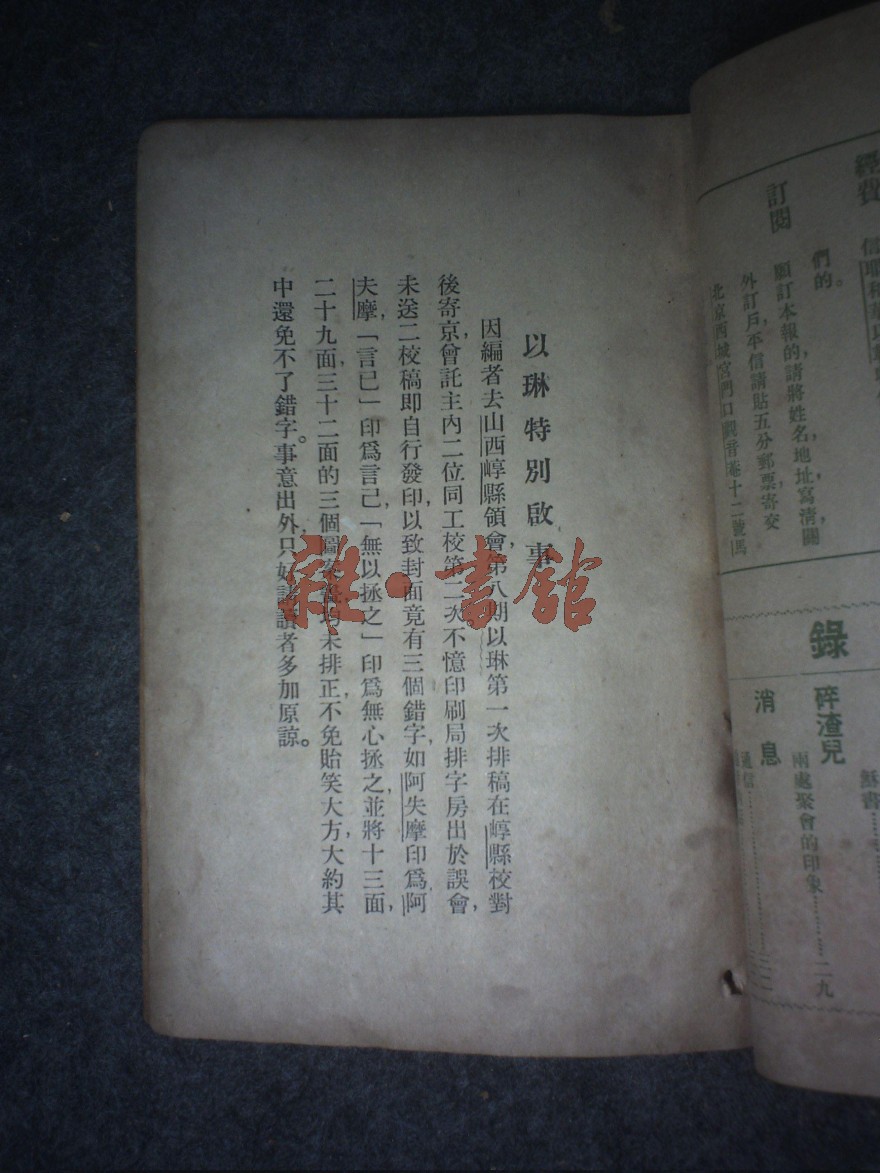 經費
信耶和華以
們的。
訂閱
願訂本報的,請將姓名,地址,寫清,關
外訂戶,平信請貼五分郵票寄交
北京西城宮門口觀音菴十二號馬
錄
碎渣兒
兩處聚會的印象………二九
消息
通信
以琳特別啟事
因編者去山西崞縣領會,第八期以琳第一次排稿在崞縣校對
後寄京,曾託主內二位同工校第二次,不憶印刷局排字房出於誤會,
未送二校稿即自行發印,以致封面竟有三個錯字,如阿失摩印爲,阿
夫摩,「言已」印爲言己,「無以拯之」印爲無心拯之,並將十三面,
二十九面,三十二面的三個圖案 均未排正,不免貽笑大方,大約其
中還免不了錯字。事意出外,只好請讀者多加原諒。
雜·書館